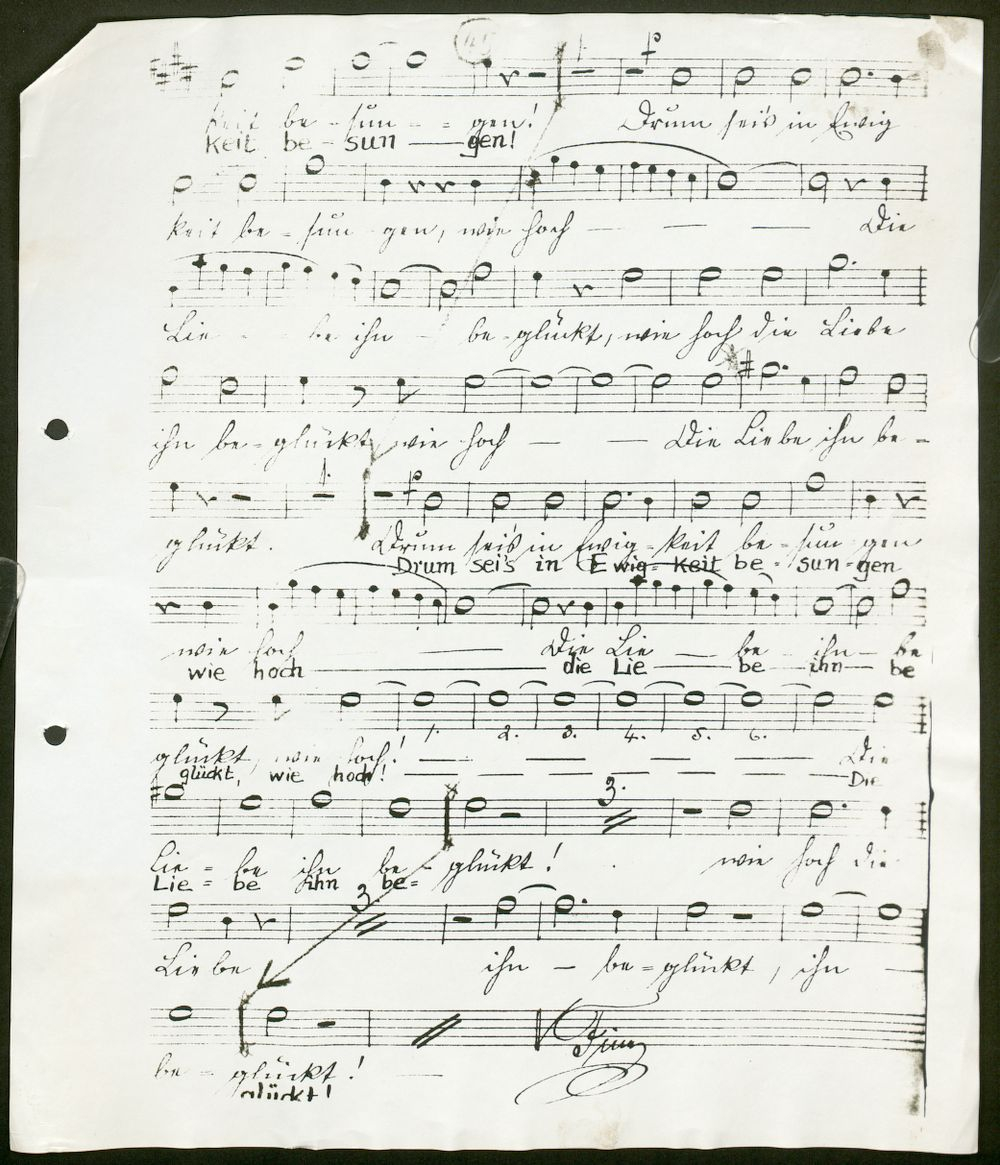 keit be - sun - - gen! Drum sei's in Ewig
keit be - sun — gen!
keit be - sun - gen, wie hoch — — — Die
Lie - be ihn - be-glückt, wie hoch die Liebe
ihn be-glückt, wie hoch — — Die Liebe ihn be-
glückt. Drum sei's in Ewig-keit be-sun-gen
Drum sei's in Ewig-keit be-sun-gen
wie hoch — — Die Lie — be - ihn - be
wie hoch — die Lie — be ihn — be
1. 2. 3. 4. 5. 6.
glückt, wie hoch! — — — — — Die
glückt, wie hoch! — — — — — Die
3.
Lie = be ihn be - glückt! wie hoch die
Lie = be ihn be=
3
Liebe ihn — be=glückt, ihn —
be - glückt! —
glückt!